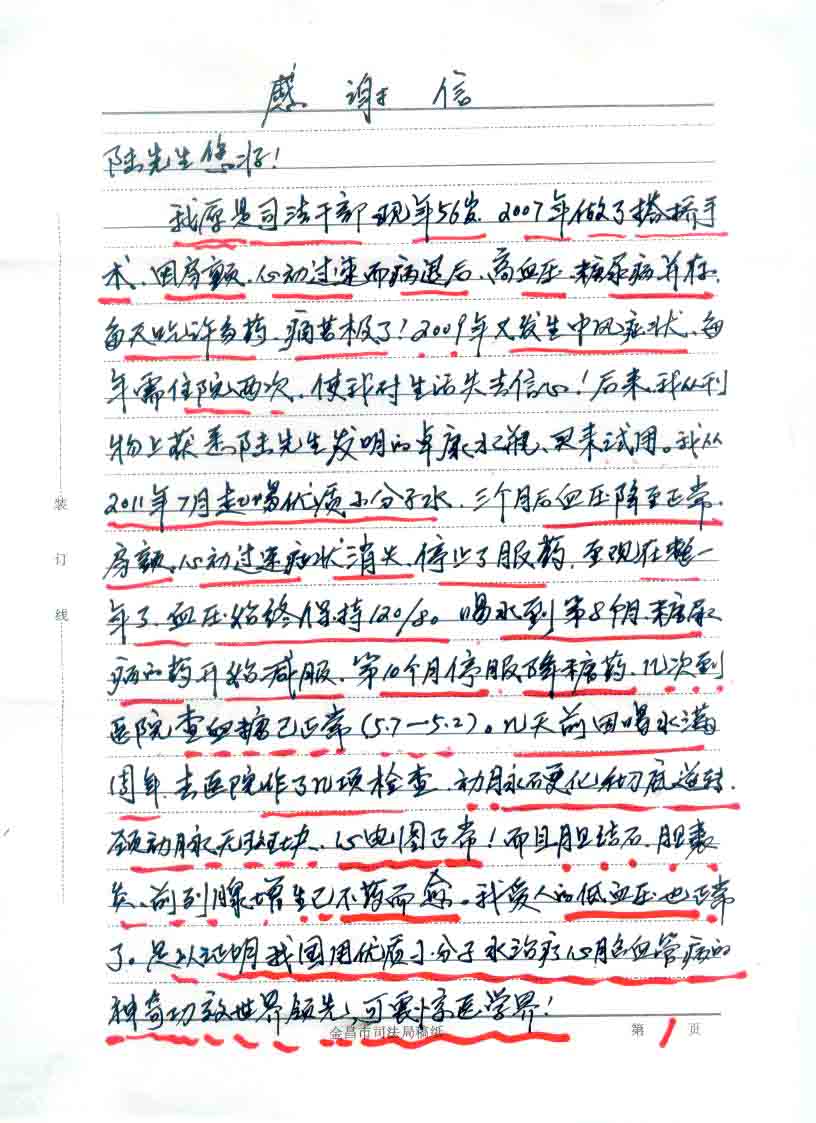 感谢信
陆先生您好!
我原是司法干部 现年56岁. 2007年做了搭桥手
术.因房颤、心动过速而病退后、高血压 糖尿病并存.
每天吃许多药、痛苦极了!2009年又发生中风症状、每
年需住院两次、使我对生活失去信心!后来、我从刊
物上获悉陆先生发明的卓康水瓶、买来试用。我从
2011年7月起喝优质小分子水、三个月后血压降至正常.
房颤、心动过速症状消失、停止了服药、至现在整一
年了、血压始终保持120/80 喝水到第8个月、糖尿
病的药开始减服、第10个月停服降糖药、几次到
医院查血糖已正常(5.7—5.2)。几天前因喝水满
周年、去医院作了几项检查、动脉硬化彻底逆转.
颈动脉无斑块、心电图正常!而且胆结石、胆囊
炎、前列腺增生已不药而愈。我爱人的低血压也正常
了。足以证明我国用优质小分子水治疗心脑血管病的
神奇功效世界领先、可震惊医学界!
装
订
线
金昌市司法局稿纸
第 1 页